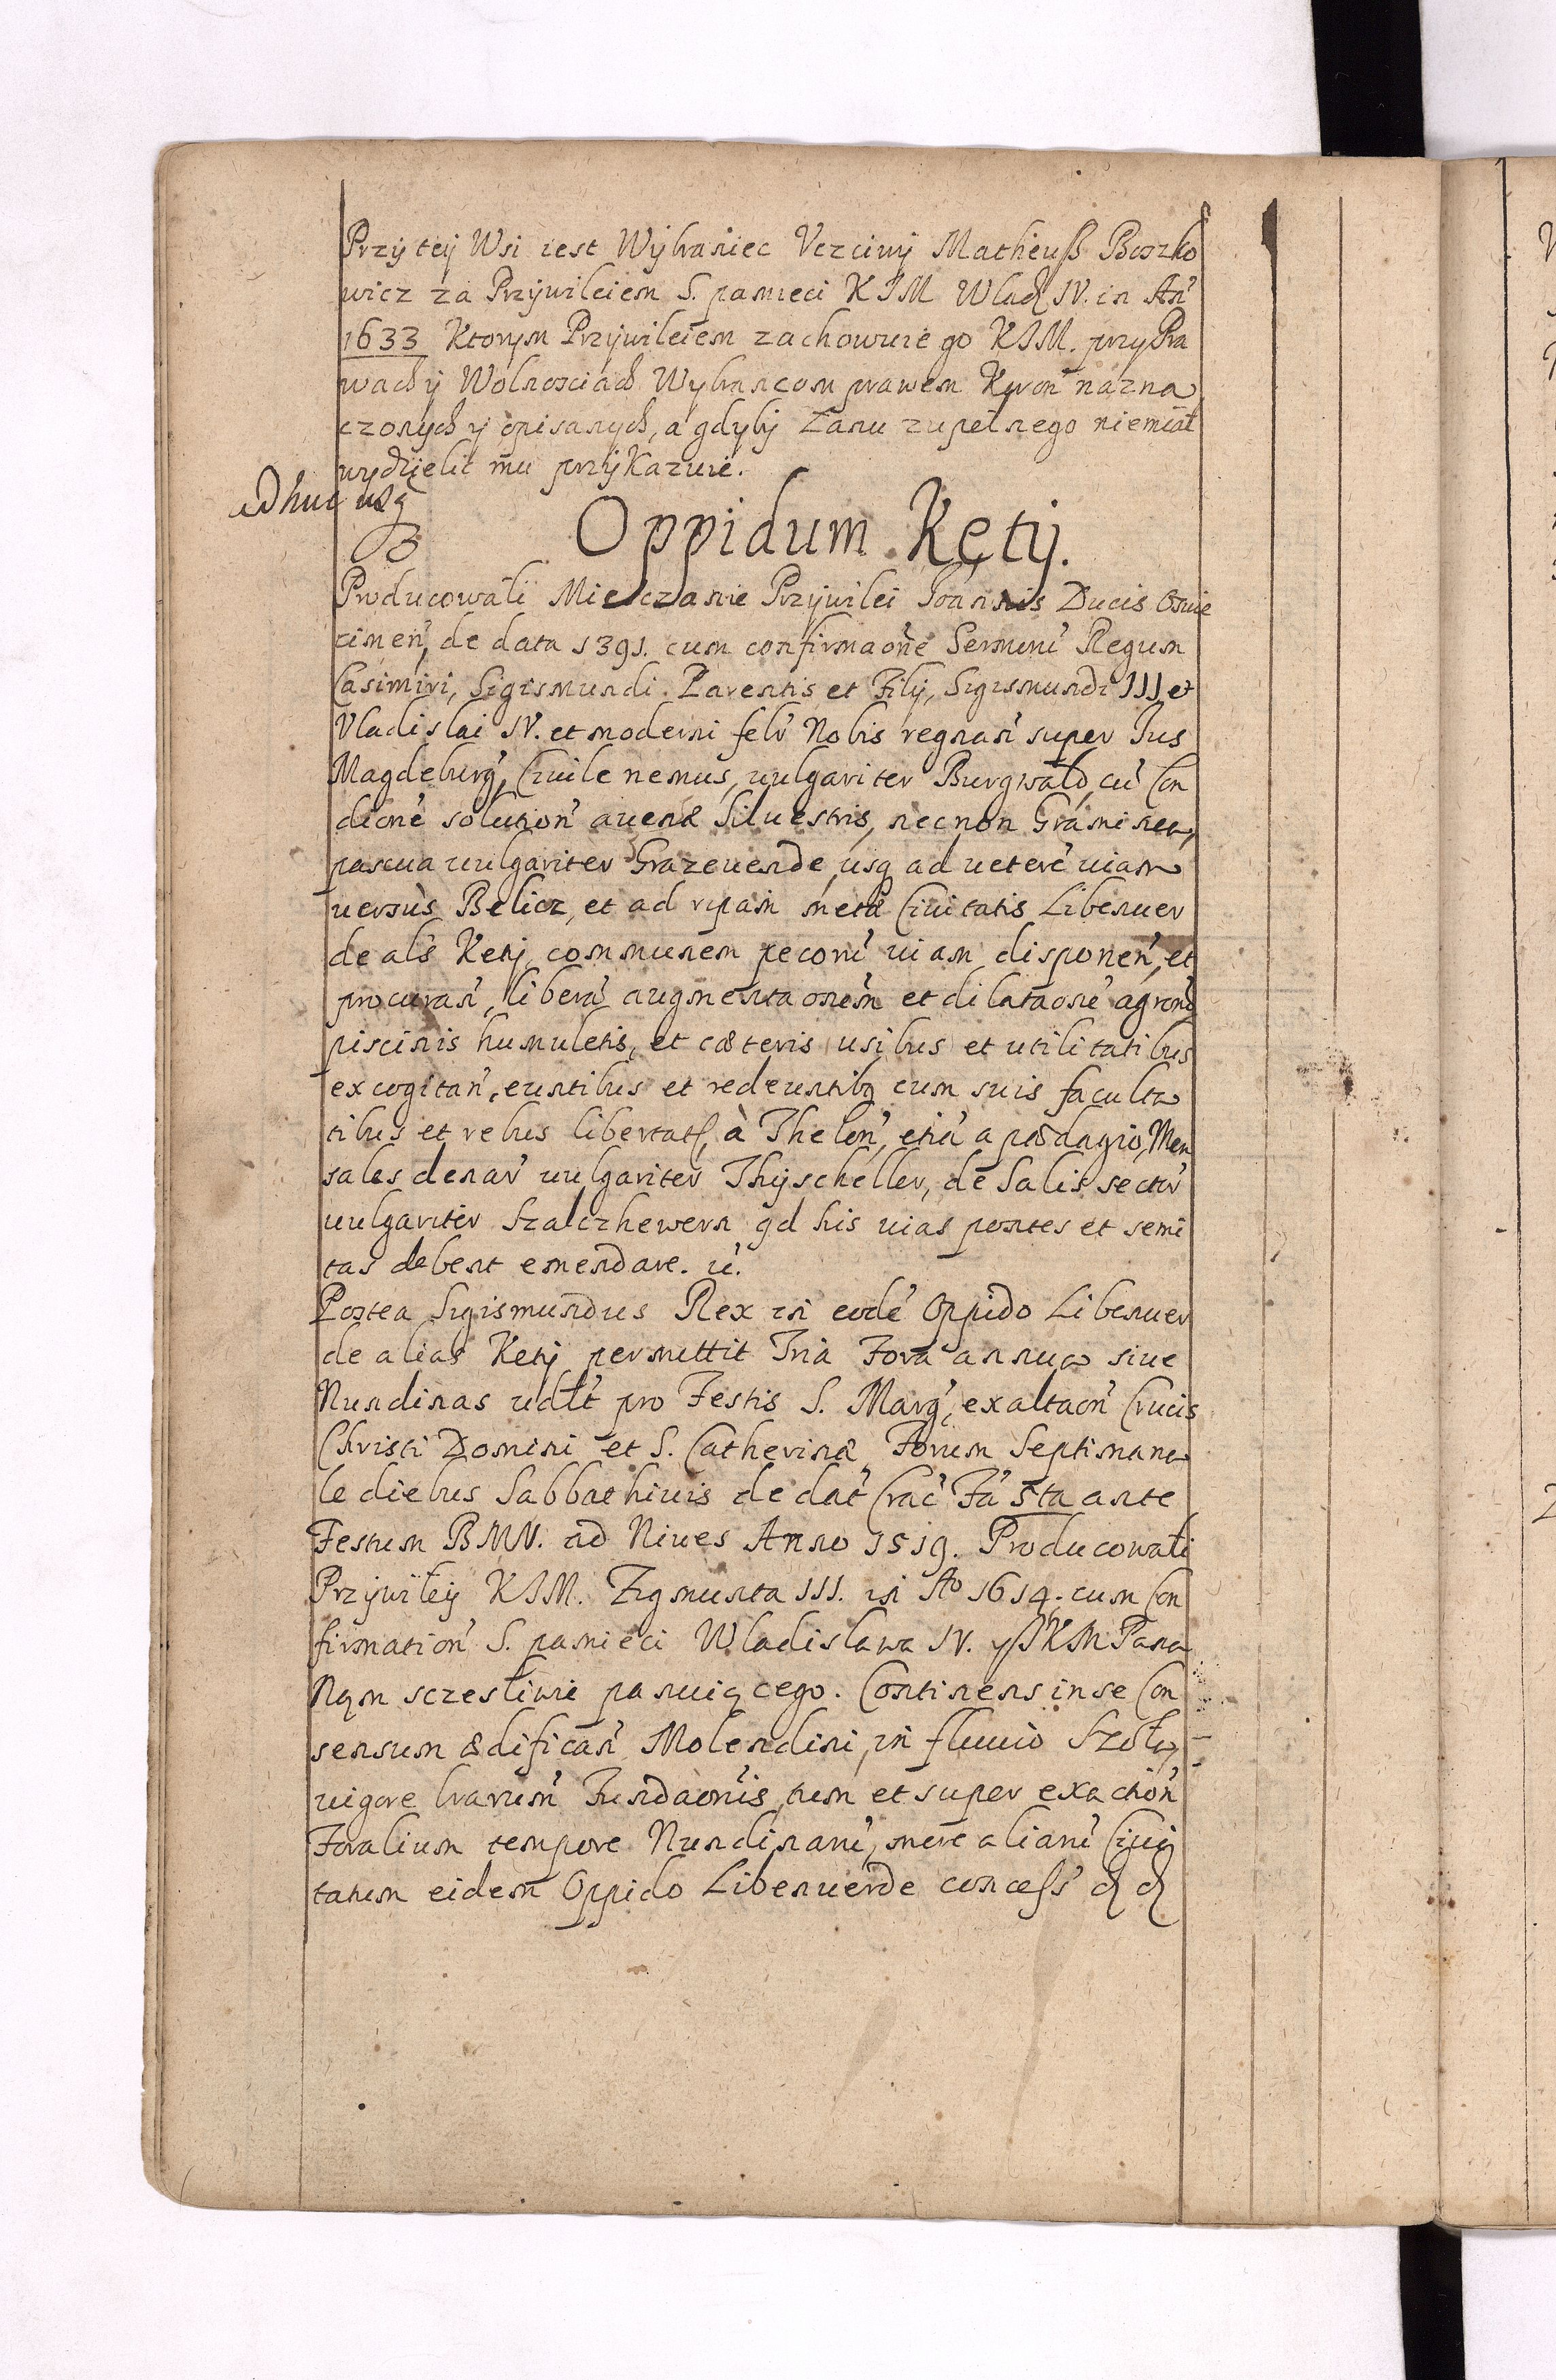 Przy teÿ Wsi iest Wybraniec Vczciwÿ Matheuß Boszko
wicz za Przÿwileiem S. pamieci K I M Wlad IV. in An'
1633 Ktorym Przÿwileiem zachowuie go K I M. przy Pra
wach ÿ Wolnosciach Wybrancom prawem Koron' nazna
czonych y opisanych, a gdyby Łanu zupełnego niemiał
wydzielić mu przÿkazuie.
adhuc usq
Oppidum Kętÿ.
Producowali Miesczanie Przÿwilei Ioannis Ducis Oswie
cimen', de data 1391. cum confirmaone Sermorū Regum
Casimiri, Sigismundi Parentis et Filÿ, Sigismundi III et
Vladislai IV. et moderni felr' Nobis regnan' super Ius
Magdeburg', Ciuile nemus, uulgariter Burgwald, cū Con
dicōne solution' auenæ Siluestris, necnon Graminea,
pascua uulgariter Grazeuende, usq ad ueterē uiam
uersùs Belicz, et ad ripam metæ Ciuitatis Libenuer
de als Ketÿ, communem pecorū uiam disponen', et
procuran', liberā augmentaonem et dilataone agrorū
piscinis humuletis, et cæteris usibus et utilitatibus
excogitan', euntibus et redeuntibq cum suis faculta
tibus et rebus libertat', à Thelon', etiā a pædagio, Men
sales denar' uulgariter Thÿscheller, de Salis sectur'
uulgariter Szalczhewern qd his uias pontes et semi
tas debent emendare. ū.
Postea Sigismundus Rex in eodē Oppido Libenuer
de alias Ketÿ permittit Tria Fora annua siue
Nundinas udlt pro Festis S. Marg', exaltaon' Crucis
Christi Domini et S. Catherinæ, Forum Septimana
le diebus Sabbathiuis de dat' Crac' Fa 5ta ante
Festum BMV. ad Niues Anno 1519. Producowali
Przÿwileÿ K I M. Zigmunta III. in Ao 1614. cum Con
firmation' S. pamieci Wladislawa IV. y I K M Pana
Nąm sczesliwie panuiącego. Continens in se Con
sensum ædifican' Molendini, in fluuio Szoła,
uigore lrarum' Fundaonis, tum et super exaction'
Foralium tempore Nundinarū, more aliarū Ciui
tatum eidem Oppido Libenuerde concess'